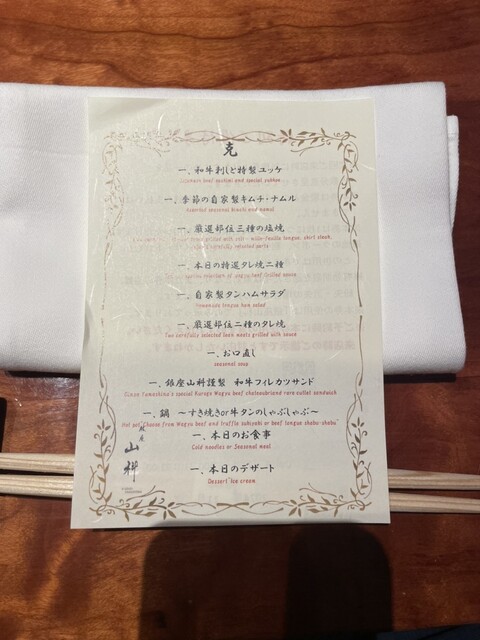 克
一、和牛刺しと特製ユッケ
beef sashimi and special yukhoe
一、季節の自家製キムチ・ナムル
Assorted seasonal kimchi and namul
一、厳選部位三種の塩焼
grilled with salt
carefully selected parts
一、本日の特選タレ焼二種
grilled sauce
一、自家製タンハムサラダ
Homemade tongue ham salad
一、厳選部位二種のタレ焼
Two carefully selected lean meats grilled with sauce
一、お口直し
seasonal soup
一、銀座山科謹製 和牛フィレカツサンド
Ginza Yamashina's special Kuroge Wagyu beef chateaubriand rare cutlet sandwich
一、鍋 〜すき焼きor牛タンのしゃぶしゃぶ〜
Hot pot "Choose from Wagyu beef and truffle sukiyaki or beef tongue shabu-shabu"
一、本日のお食事
Cold noodles or Seasonal meal
一、本日のデザート
Dessert Ice cream
銀座
山輝